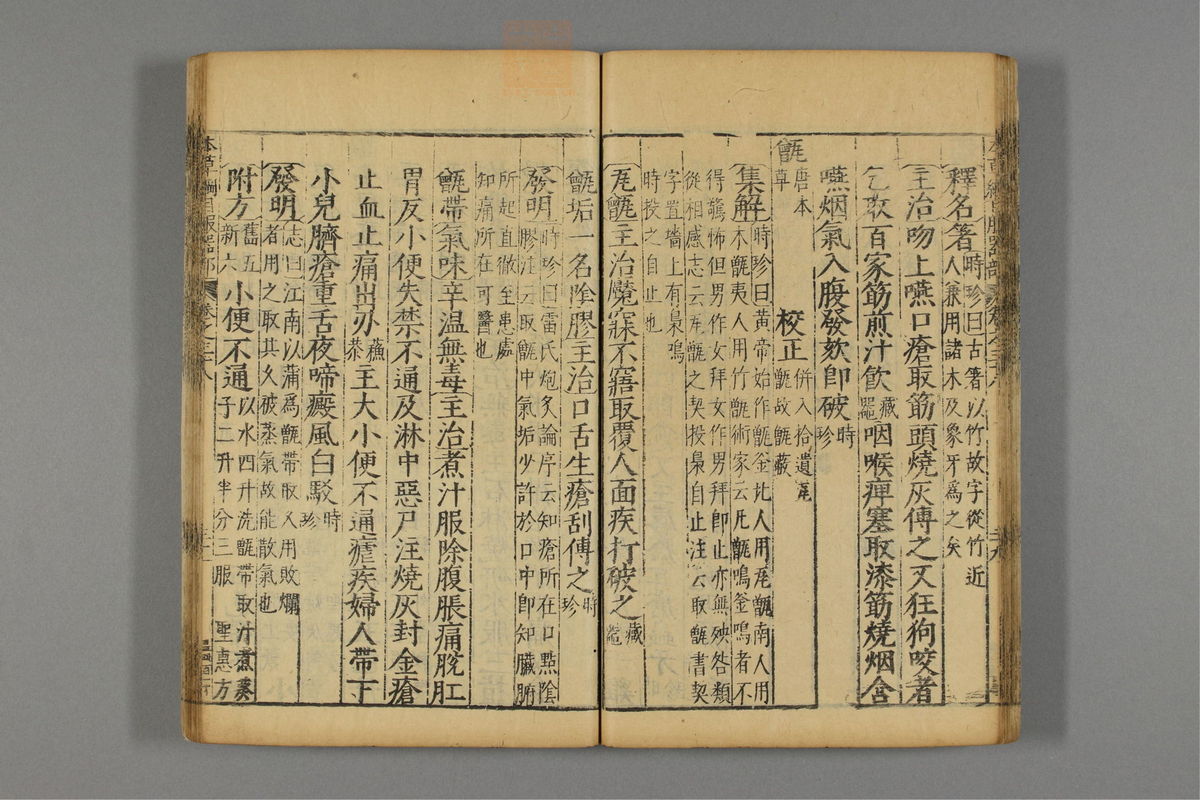 釋名箸時珍曰古箸以竹故字從竹近
人兼用諸木及象牙爲之矣
主治吻上嚥口瘡取筋頭燒灰傅之又狂狗咬者
乞取百家筋煎汁飲藏器咽喉痺塞取漆筋燒烟含
嚥烟氣入腹發欬卽破時珍
甑唐本草 校正併入拾遺瓦甑故甑蔽
集解時珍曰黃帝始作甑釜北人用瓦甑南人用
木甑夷人用竹甑術家云凡甑鳴釜鳴者不
得驚怖但男作女拜女作男拜卽止亦無殃咎類
從相感志云瓦甑之契投梟自止注云取甑書契
字置墻上有梟鳴
時投之自止也
瓦甑主治魘寐不寤取覆人面疾打破之藏器
甑垢一名陰膠主治口舌生瘡刮傅之時珍
發明時珍曰雷氏炮炙論序云知瘡所在口點陰
膠注云取甑中氣垢少許於口中卽知臟腑
所起直徹至患處
知痛所在可醫也
甑帶氣味辛溫無毒主治煮汁服除腹脹痛脫肛
胃反小便失禁不通及淋中惡尸注燒灰封金瘡
止血止痛出刃蘇恭主大小便不通瘧疾婦人帶下
小兒臍瘡重舌夜啼癜風白駁時珍
發明志曰江南以蒲爲甑帶取久用敗爛
者用之取其久被蒸氣故能散氣也
附方舊五新六小便不通以水四升洗甑帶取汁煮葵
子二升半分三服 聖惠方
本草綱目服器部 卷之三十八